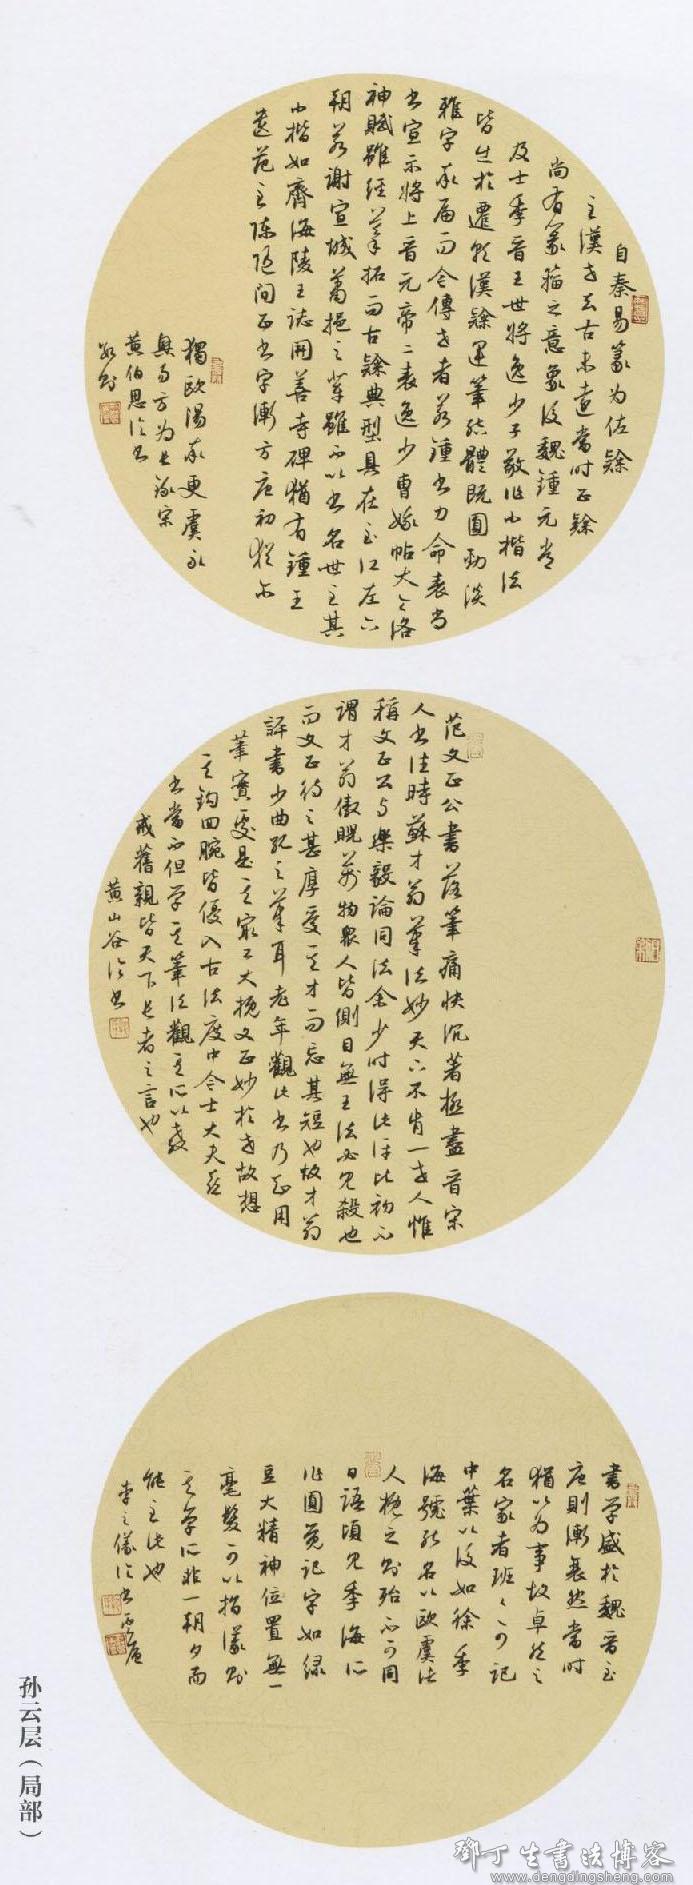 自秦易篆为佐隸
至漢世去古未遠當时正隸
尚有篆籀之意象後魏鍾元常
及士季晋王世將逸少子敬作小楷法
皆出於遷就漢隸運筆結體既圓勁淡
雅字率扁而今傳世者若鍾书力命表尚
书宣示將上晋元帝二表逸少曹娥帖大令洛
神賦雖经摹拓而古隸典型具在至江左六
朝若谢宣城萧挹之辈雖不以书名世至其
小楷如齊海陵王誌開善寺碑猶有鍾王
遗范至陈隋间正书字漸方唐初犹尔
獨欧阳率更虞永
興易方为长
黄伯思论书
范文正公書落筆痛快沉著極盡晋宋
人书佳時蘇才翁筆法妙天下不肯一世人惟
稱文正公与樂毅論同法余少时得此评初不
謂才翁傲睨萬物眾人皆側目無王法必見殺也
而文正待之甚厚爱其才而忘其短也故才翁
評書少曲董狐之筆耳老年觀此书乃知用
筆實處是其最工大概文正妙於世故想
其钩回腕皆優入古法度中今士大夫喜
书當不但学其筆法觀其所以教
戒舊親皆天下长者之言也
黄山谷论书
書学盛於魏晋至
唐则漸衰然當时
猶以为事故卓然之
名家者班班可记
中葉以後如徐季
海號能名以欧虞法
人概之則殆不可同
日語頃见季海所
作圆觉记字如绿
豆大精神位置無一
毫髮可以指議则
其学所非一朝夕而
能至此也
李之儀论书
孙云层（局部）
鄧丁生書法博客
www.dengdingsheng.com